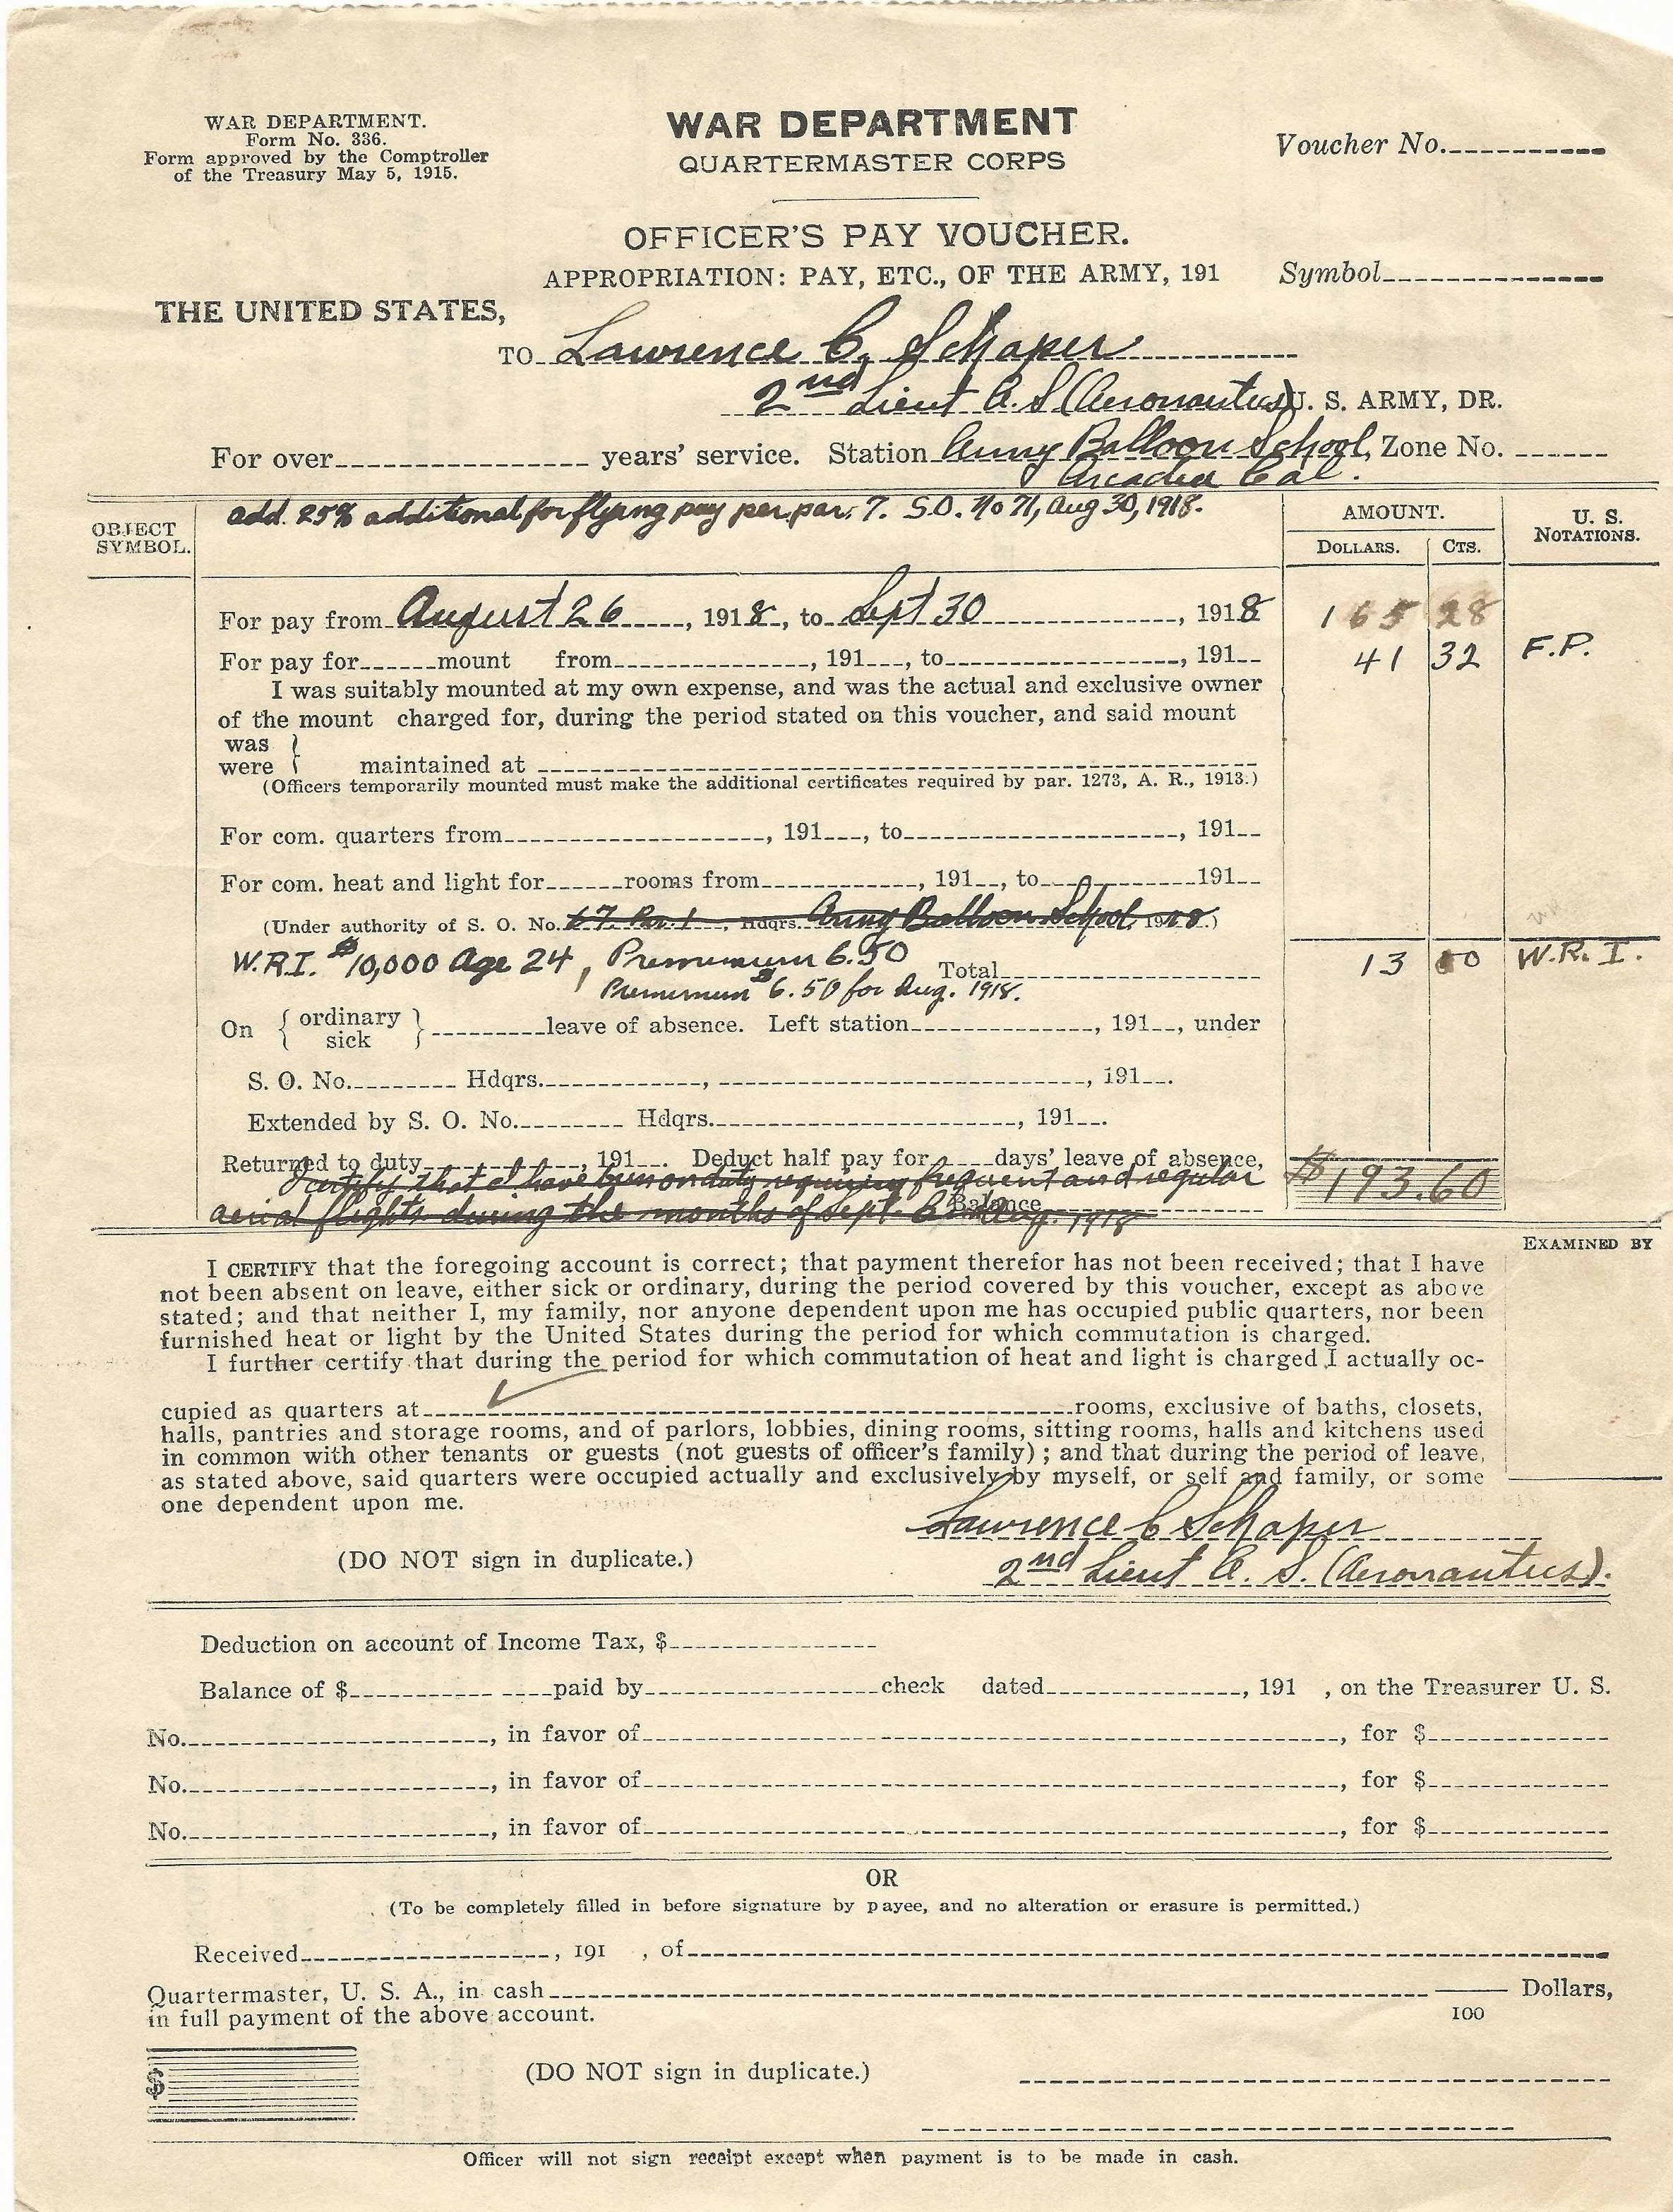 WAR DEPARTMENT.
Form No. 336.
Form approved by the Comptroller
of the Treasury May 5, 1915.
WAR DEPARTMENT
QUARTERMASTER CORPS
Voucher No.
OFFICER'S PAY VOUCHER.
APPROPRIATION: PAY, ETC., OF THE ARMY, 191
Symbol
THE UNITED STATES,
TO Lawrence C. Schaper
2nd Lieut A.S (Aeronautics) U. S. ARMY, DR.
For over years' service. Station Army Balloon School, Zone No.
Arcadia Cal.
OBJECT SYMBOL.
add. 25% additional for flying pay per par. 7. S.O. No 71, Aug 30, 1918.
AMOUNT.
DOLLARS. CTS.
U. S. NOTATIONS.
For pay from August 26, 1918, to Sept 30, 1918 165 28
For pay for mount from, 191, to, 191 41 32 F.P.
I was suitably mounted at my own expense, and was the actual and exclusive owner
of the mount charged for, during the period stated on this voucher, and said mount
was
were } maintained at
(Officers temporarily mounted must make the additional certificates required by par. 1273, A. R., 1913.)
For com. quarters from, 191, to, 191
For com. heat and light for rooms from, 191, to 191
(Under authority of S. O. No. 67. Par. 1, Hdqrs. Army Balloon School, 1918.)
W.R.I. $10,000 Age 24, Premimum 6.50 Total 13 00 W.R.I.
Premimum $6.50 for Aug. 1918.
On { ordinary sick } leave of absence. Left station, 191, under
S. O. No. Hdqrs., , 191.
Extended by S. O. No. Hdqrs., 191.
Returned to duty, 191. Deduct half pay for days' leave of absence,
I certify that I have been on duty requiring frequent and regular
aerial flights during the months of Sept. Aug. 1918
Balance
$193.60
EXAMINED BY
I CERTIFY that the foregoing account is correct; that payment therefor has not been received; that I have
not been absent on leave, either sick or ordinary, during the period covered by this voucher, except as above
stated; and that neither I, my family, nor anyone dependent upon me has occupied public quarters, nor been
furnished heat or light by the United States during the period for which commutation is charged.
I further certify that during the period for which commutation of heat and light is charged I actually oc-
cupied as quarters at rooms, exclusive of baths, closets,
halls, pantries and storage rooms, and of parlors, lobbies, dining rooms, sitting rooms, halls and kitchens used
in common with other tenants or guests (not guests of officer's family); and that during the period of leave,
as stated above, said quarters were occupied actually and exclusively by myself, or self and family, or some
one dependent upon me.
Lawrence C Schaper
(DO NOT sign in duplicate.)
2nd Lieut A. S. (Aeronautics).
Deduction on account of Income Tax, $
Balance of $ paid by check dated, 191 , on the Treasurer U. S.
No., in favor of, for $
No., in favor of, for $
No., in favor of, for $
OR
(To be completely filled in before signature by payee, and no alteration or erasure is permitted.)
Received, 191 , of
Quartermaster, U. S. A., in cash Dollars,
in full payment of the above account. 100
$
(DO NOT sign in duplicate.)
Officer will not sign receipt except when payment is to be made in cash.